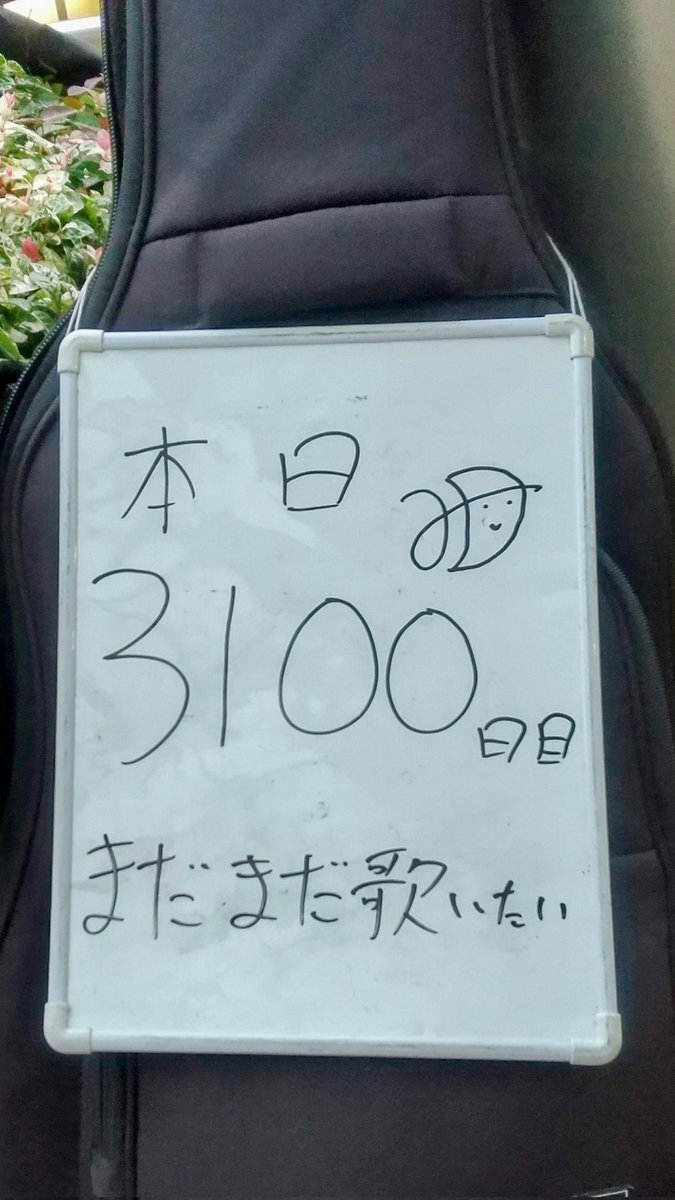 本日
3100日目
まだまだ歌いたい